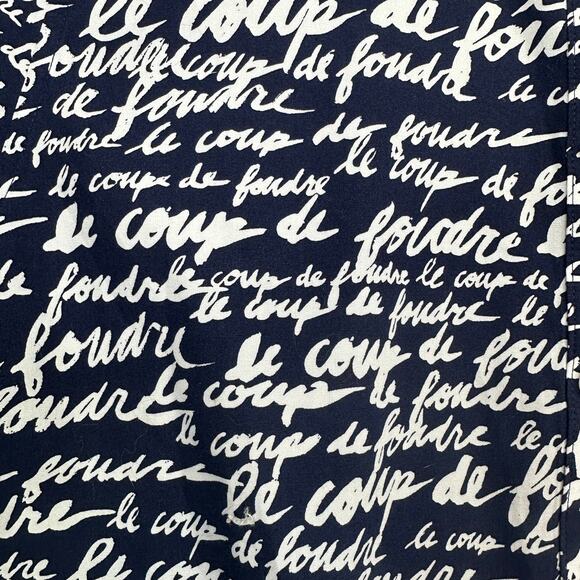 le coup de foudre
foudre le coup de foudre le c
de foudre
de foudre le coup de foudre
le coup de foudre le coup de fo
le coup de foudre
de foudre le coup de foudre le coup de
le coup de foudre le
foudre le coup de fou
foudre le coup de foudre
le coup de foudre le c
foudre le coup de fo
foudre le coup de foudre le coup de